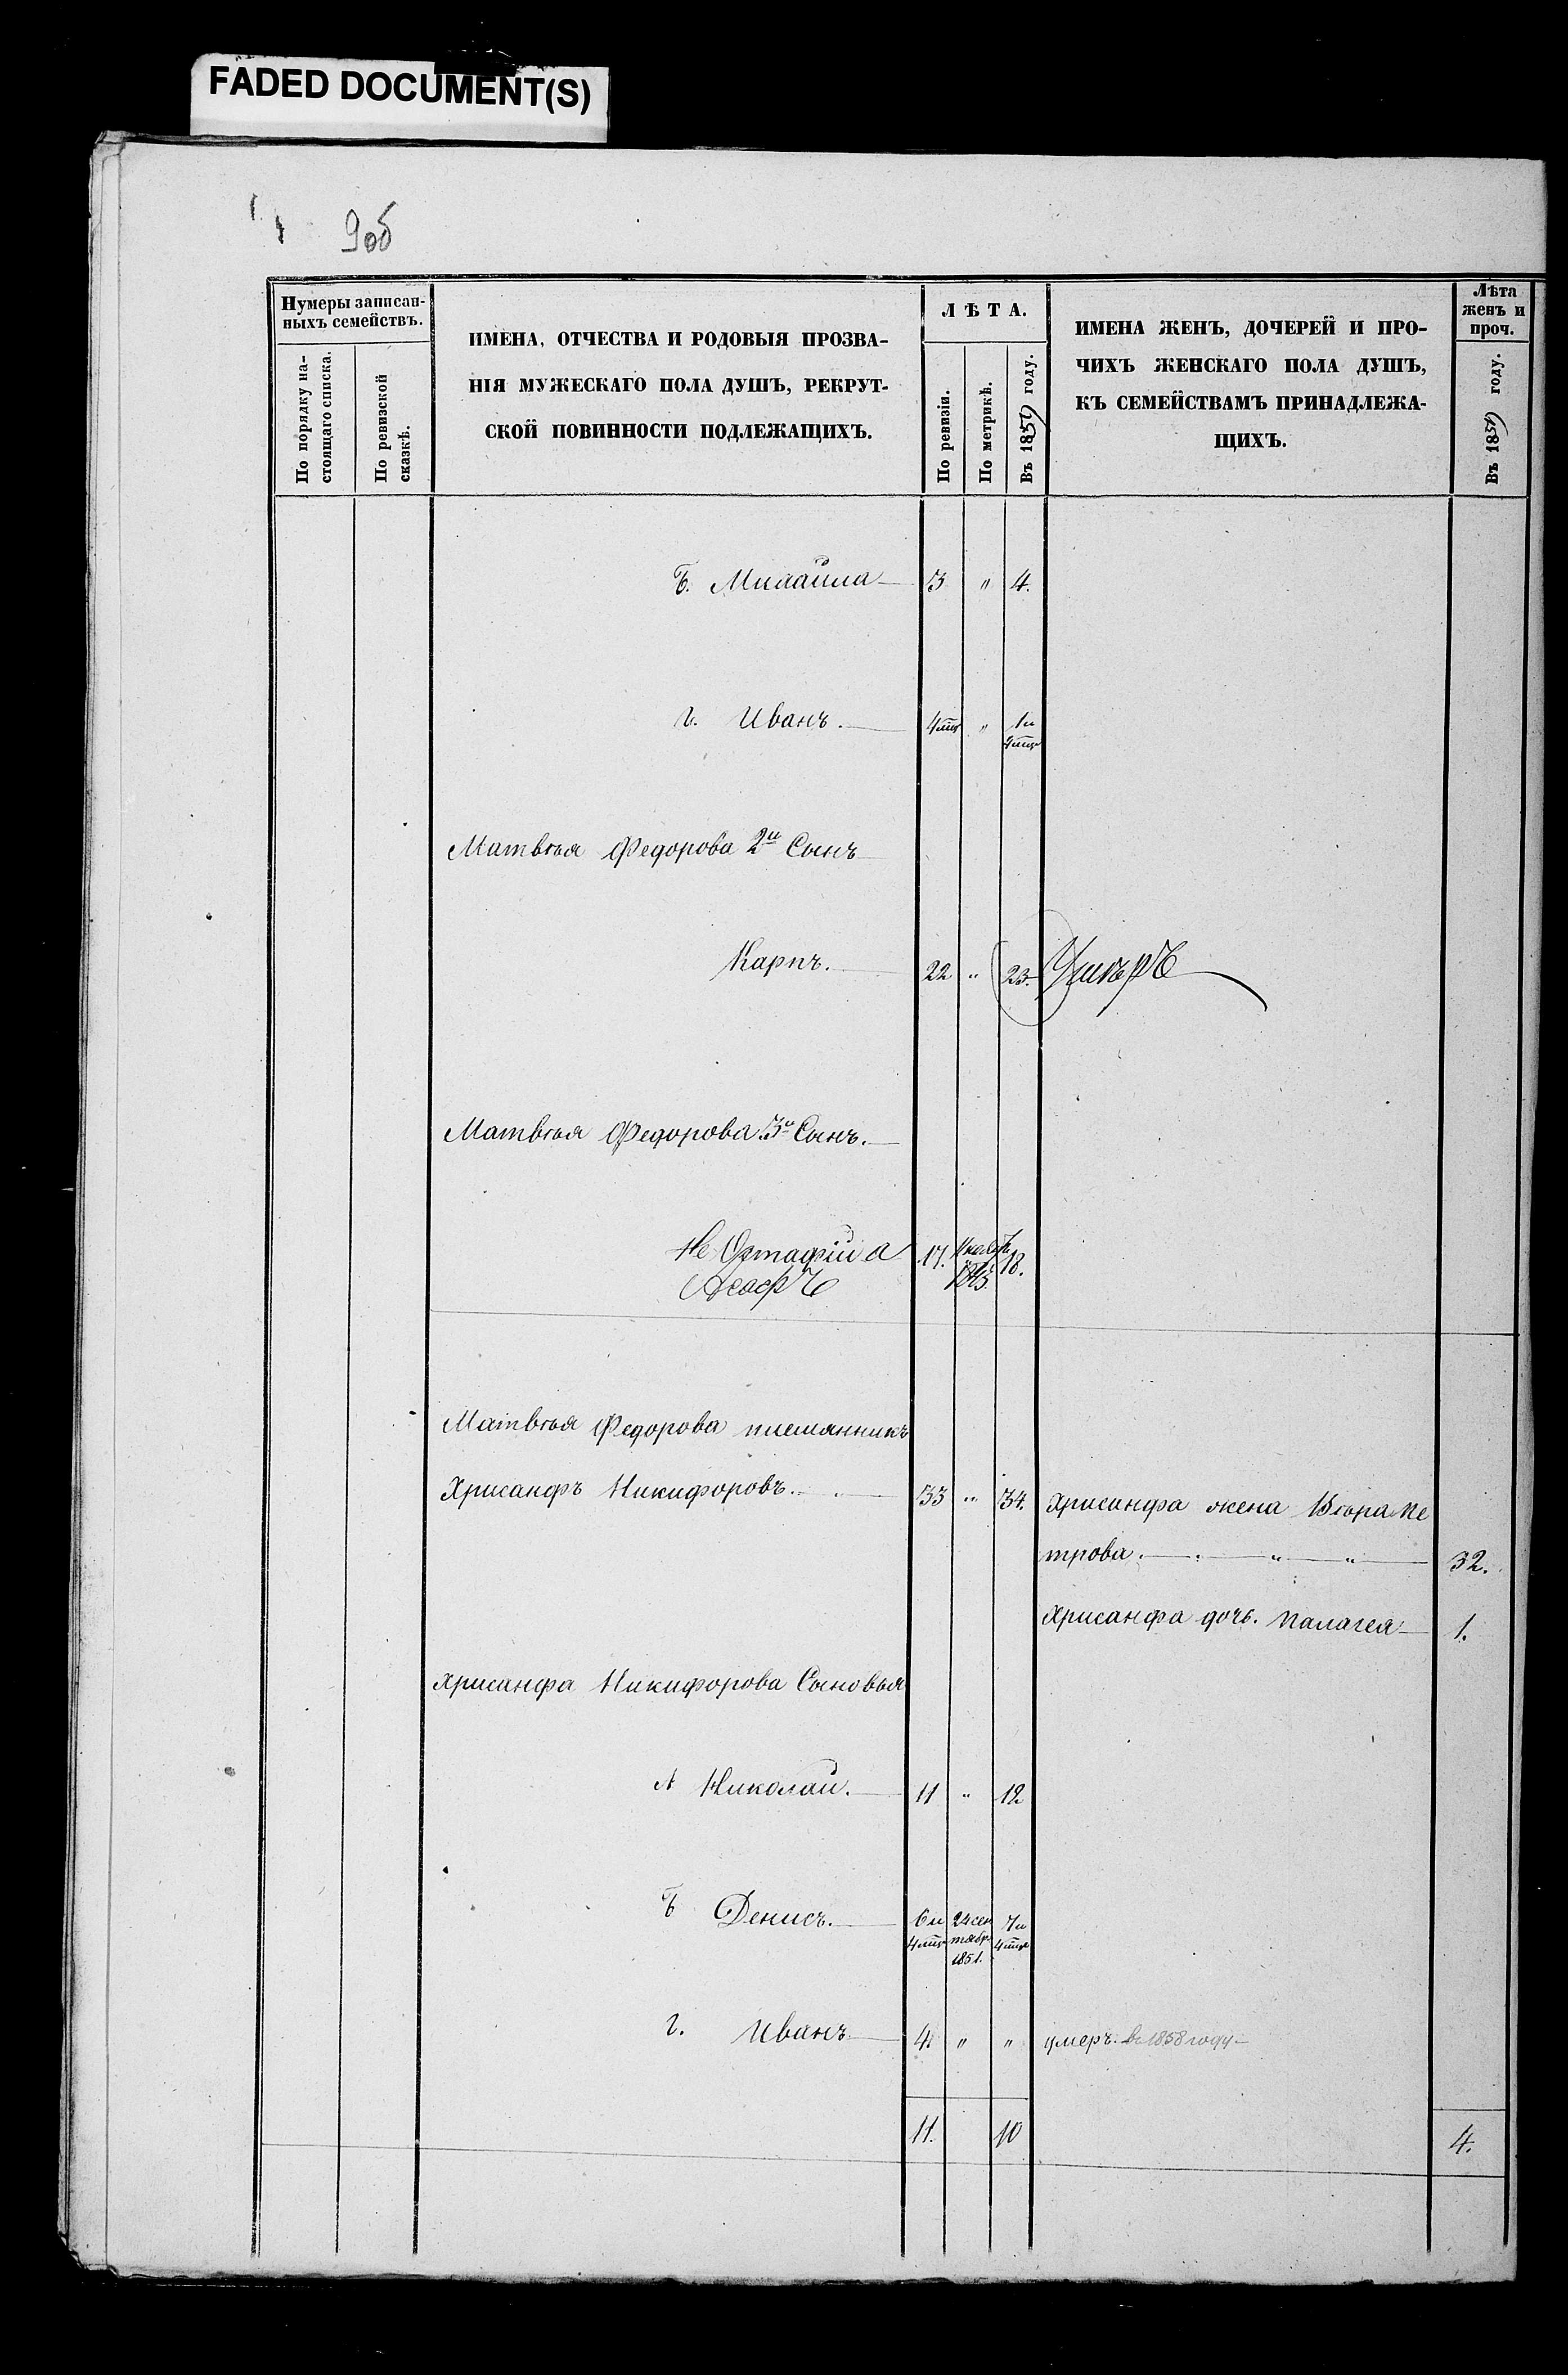 FADED DOCUMENT(S)
9об
Нумеры записан-
ныхъ семействъ.
По порядку на-
стоящаго списка.
По ревизской
сказкѣ.
ИМЕНА, ОТЧЕСТВА И РОДОВЫЯ ПРОЗВА-
НІЯ МУЖЕСКАГО ПОЛА ДУШЪ, РЕКРУТ-
СКОЙ ПОВИННОСТИ ПОДЛЕЖАЩИХЪ.
ЛѢТА.
По ревизіи.
По метрикѣ.
Въ 1859 году.
ИМЕНА ЖЕНЪ, ДОЧЕРЕЙ И ПРО-
ЧИХЪ ЖЕНСКАГО ПОЛА ДУШЪ,
КЪ СЕМЕЙСТВАМЪ ПРИНАДЛЕЖА-
ЩИХЪ.
Лѣта
женъ и
проч.
Въ 1859 году.
Б. Михайла 3 " 4.
г. Иванъ. 4мц " 1 и
4мц
Матвѣя Федорова 2й Сынъ
Карпъ. 22 " 23.
Матвѣя Федорова 3й Сынъ.
17. 18.
Матвѣя Федорова племянникъ
Хрисанфъ Никифоровъ. " 33 " 34. Хрисанфа жена Пе
трова. " " " 32.
Хрисанфа дочь. Палагея 1.
Хрисанфа Никифорова Сыновья
А Николай. 11 " 12
Б Денисъ. 6 и 24 сен 7 и
4мц тябр 4мц
1851.
г. Иванъ 4 " " умеръ. в 1858 году
11. 10 4.